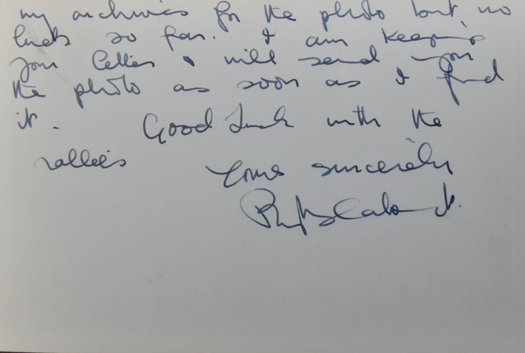 my archives for the photo but no
luck so far. I am keeping
your letter & will send you
the photo as soon as I find
it. Good Luck with the
rallies
Yours sincerely